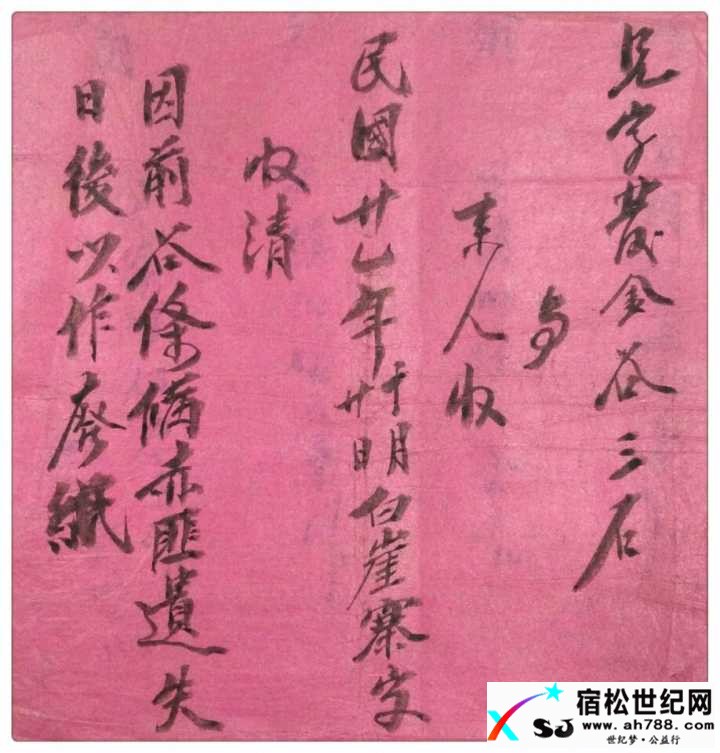 見字發金谷三石
与
来人收
民國廿乙年十月廿日明白崖寨字
收清
因前谷條偹赤匪遺失
日後以作廢紙
宿松世纪网
XSJ www.ah788.com
世纪梦·公益行